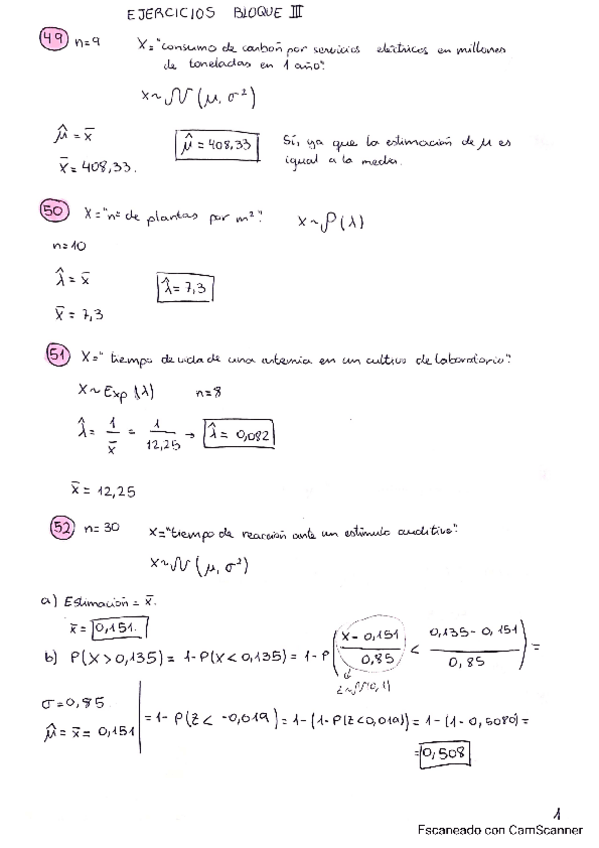 EJERCICIOS BLOQUE III
49 n=9 X="consumo de carbón por servicios eléctricos en millones
de toneladas en 1 año".
X~N(μ, σ²)
μ̂ = x̄
μ̂ = 408,33
Sí, ya que la estimación de μ es
x̄ = 408,33.
igual a la media.
50 X="nº de plantas por m²". X~P(λ)
n=10
λ̂ = x̄
λ̂ = 7,3
x̄ = 7,3
51 X="tiempo de vida de una artemia en un cultivo de laboratorio".
X~Exp(λ) n=8
λ̂ = 1/x̄ = 1/12,25 → λ̂ = 0,082
x̄ = 12,25
52 n=30 X="tiempo de reacción ante un estímulo auditivo".
X~N(μ, σ²)
a) Estimación = x̄.
x̄ = 0,151.
b) P(X>0,135) = 1-P(X<0,135) = 1-P(X-0,151/0,85 < 0,135-0,151/0,85) =
Z~N(0,1)
σ=0,85
μ̂ = x̄ = 0,151
= 1-P(Z<-0,019) = 1-(1-P(Z<0,019)) = 1-(1-0,5080) =
= 0,508
1
Escaneado con CamScanner